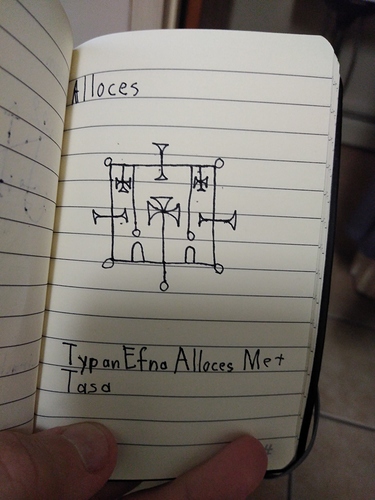 Alloces
Typan Efna Alloces Met
Tasa